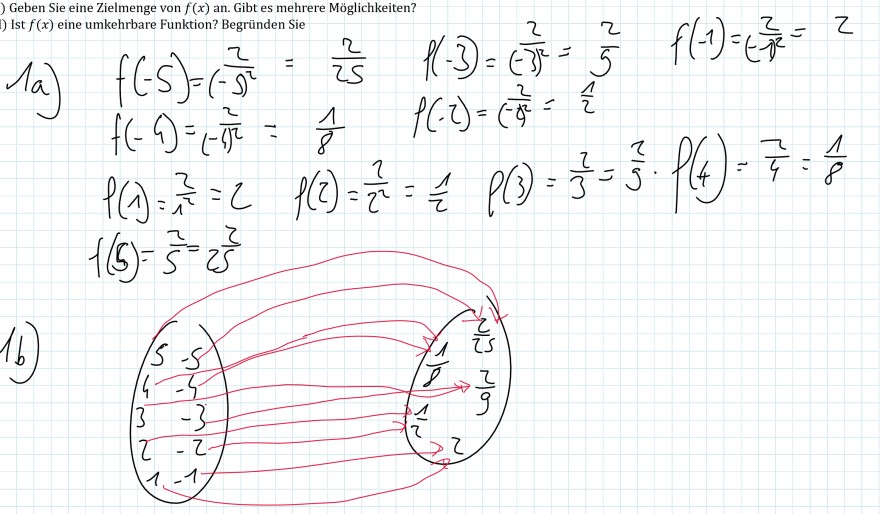 ) Geben Sie eine Zielmenge von f(x) an. Gibt es mehrere Möglichkeiten?
l) Ist f(x) eine umkehrbare Funktion? Begründen Sie
1a) f(-5) = 2/(-5)² = 2/25 f(-3) = 2/(-3)² = 2/9 f(-1) = 2/(-1)² = 2
f(-4) = 2/(-4)² = 1/8 f(-2) = 2/(-2)² = 1/2
f(1) = 2/1² = 2 f(2) = 2/2² = 1/2 f(3) = 2/3 = 2/9 . f(4) = 2/4 = 1/8
f(5) = 2/5 = 2/25
1b)
5 -5
4 -4
3 -3
2 -2
1 -1
2/25
1/8
2/9
1/2
2